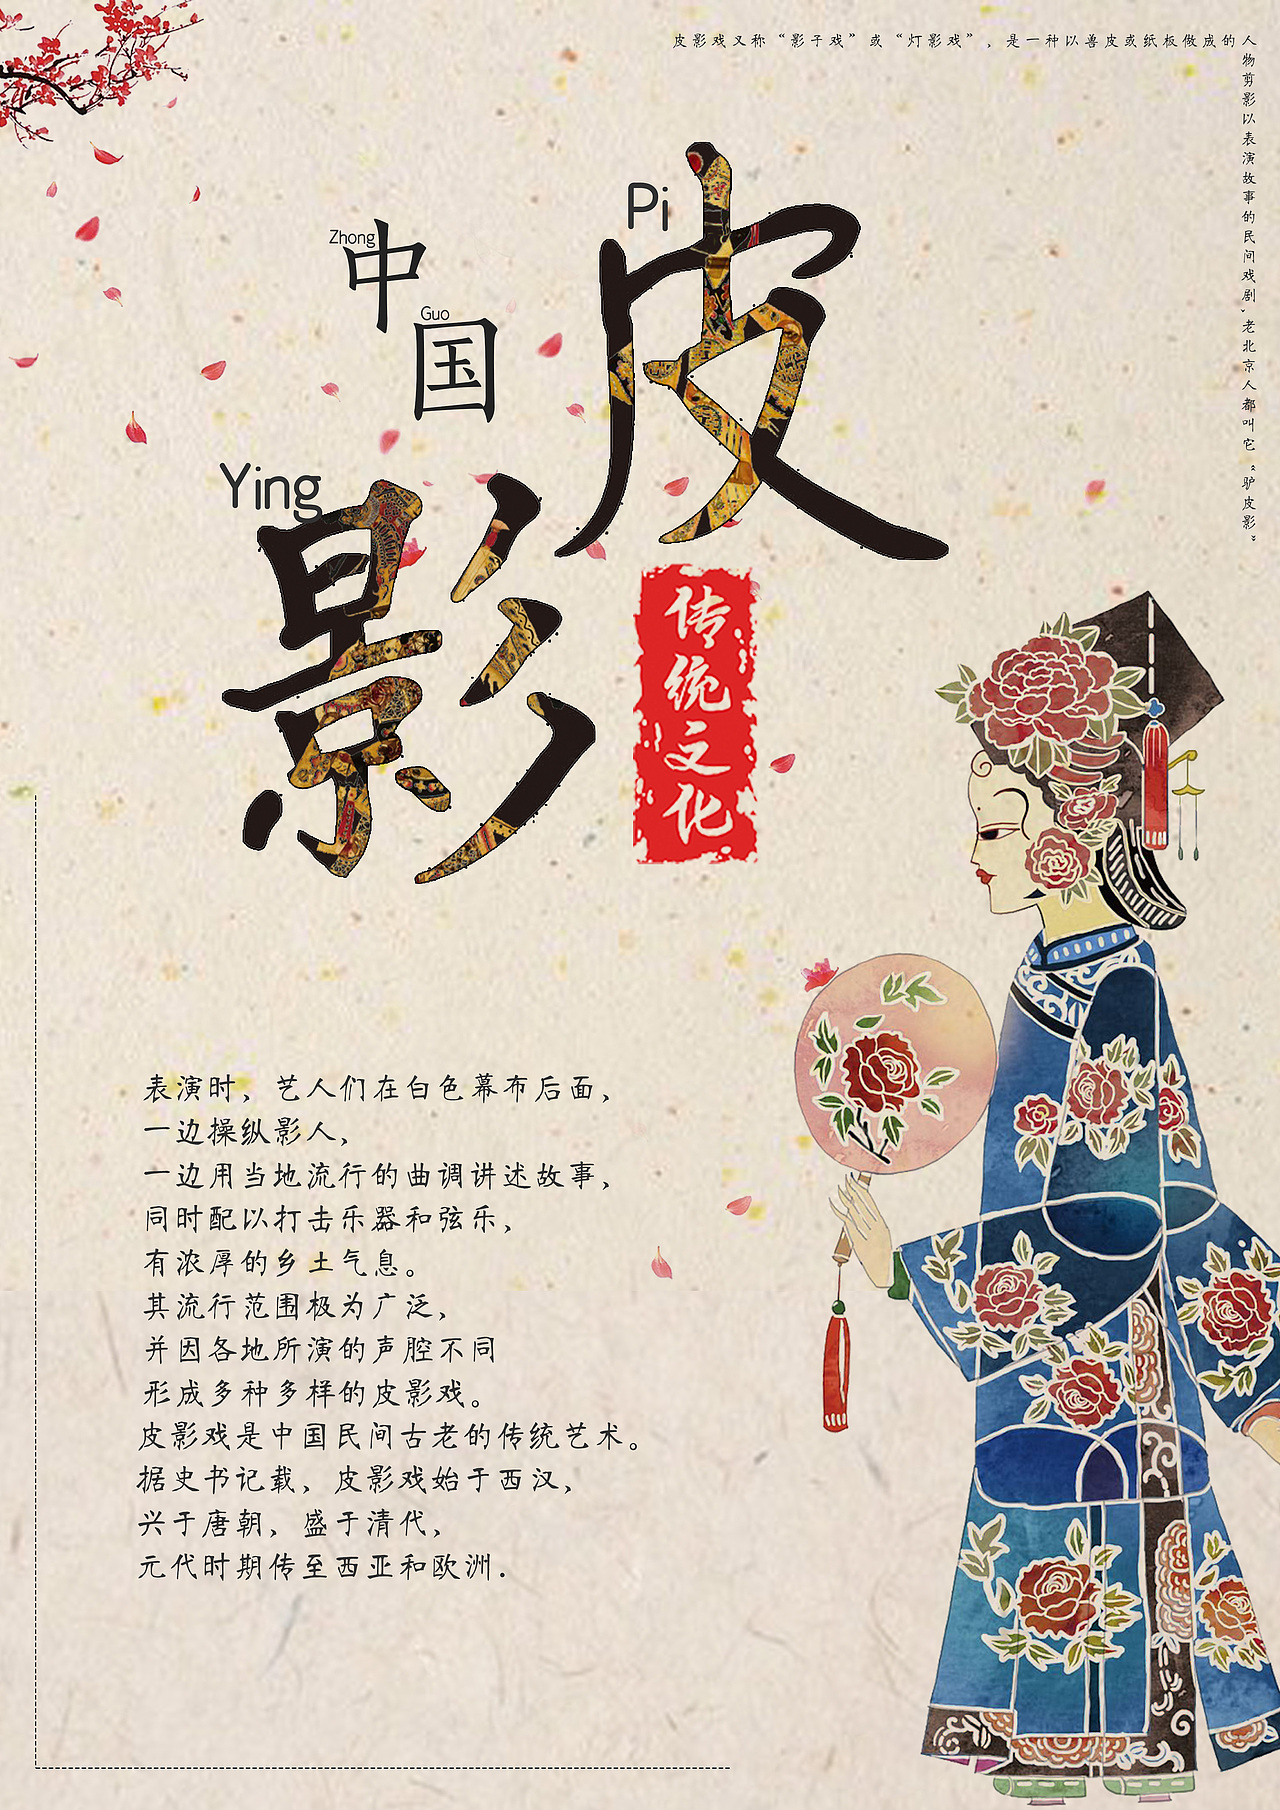 皮影戏又称“影子戏”或“灯影戏”，是一种以兽皮或纸板做成的人
物剪影以表演故事的民间戏剧，老北京人都叫它“驴皮影”
Zhong
中
Guo
国
Pi
皮
Ying
影
传统文化
表演时，艺人们在白色幕布后面，
一边操纵影人，
一边用当地流行的曲调讲述故事，
同时配以打击乐器和弦乐，
有浓厚的乡土气息。
其流行范围极为广泛，
并因各地所演的声腔不同
形成多种多样的皮影戏。
皮影戏是中国民间古老的传统艺术。
据史书记载，皮影戏始于西汉，
兴于唐朝，盛于清代，
元代时期传至西亚和欧洲.